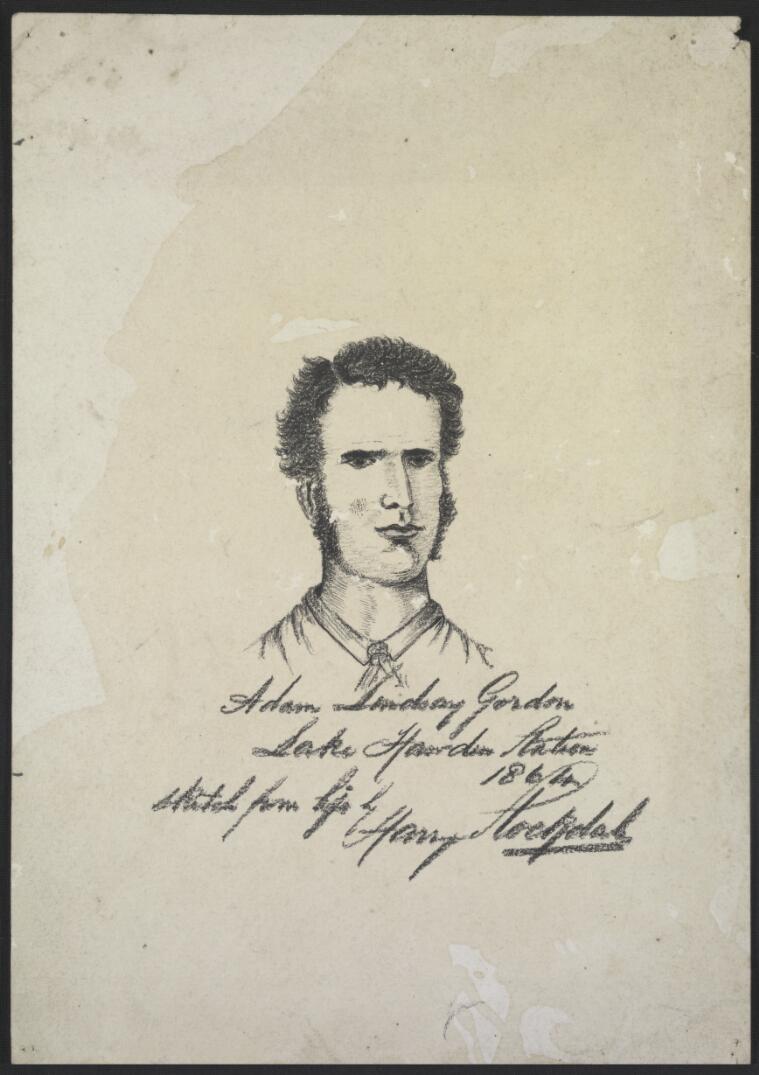 Adam Lindsay Gordon
Lake Hawdon Station
186
sketch from life by
Harry Stockdale